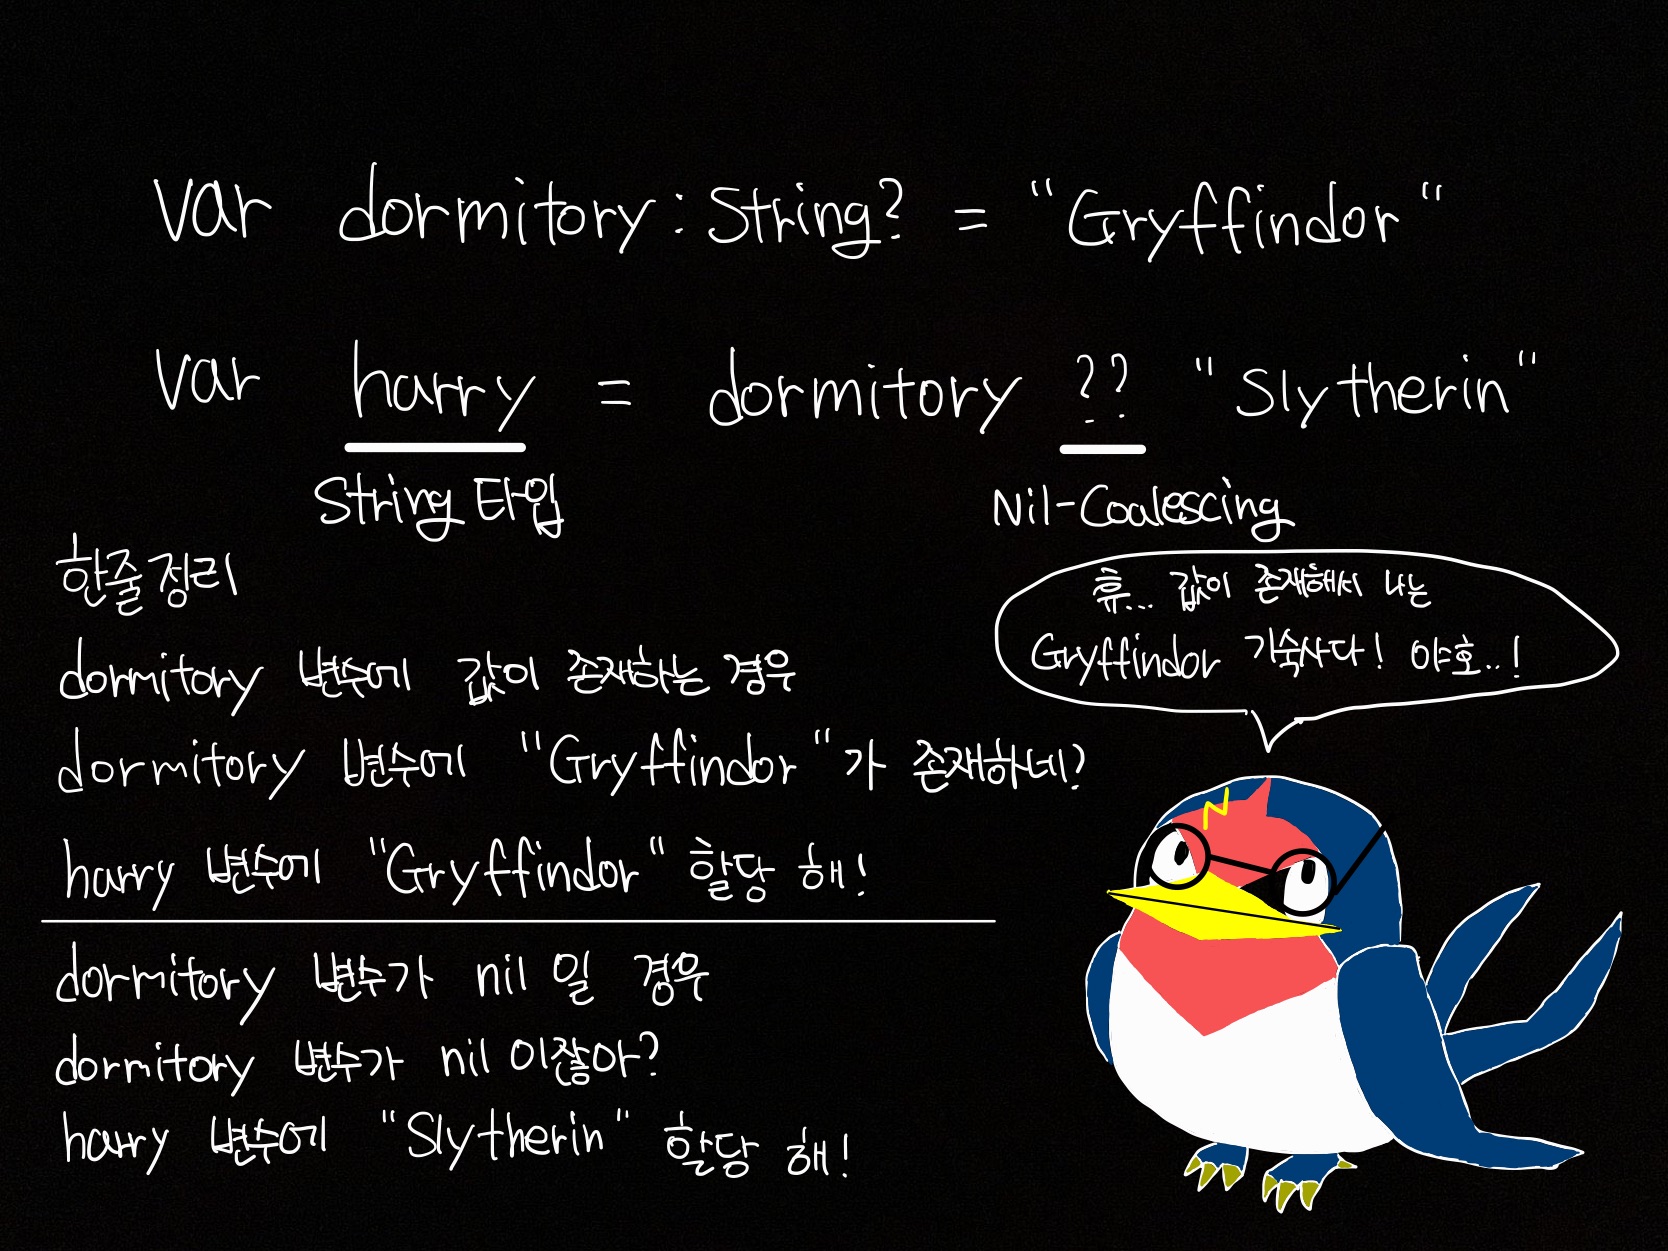 var dormitory : String? = "Gryffindor"
var harry = dormitory ?? "Slytherin"
String 타입
Nil-Coalescing
한줄정리
dormitory 변수에 값이 존재하는 경우
dormitory 변수에 "Gryffindor"가 존재하네?
harry 변수에 "Gryffindor" 할당 해!
dormitory 변수가 nil 일 경우
dormitory 변수가 nil 이잖아?
harry 변수에 "Slytherin" 할당 해!
휴... 값이 존재해서 나는
Gryffindor 기숙사다! 야호..!